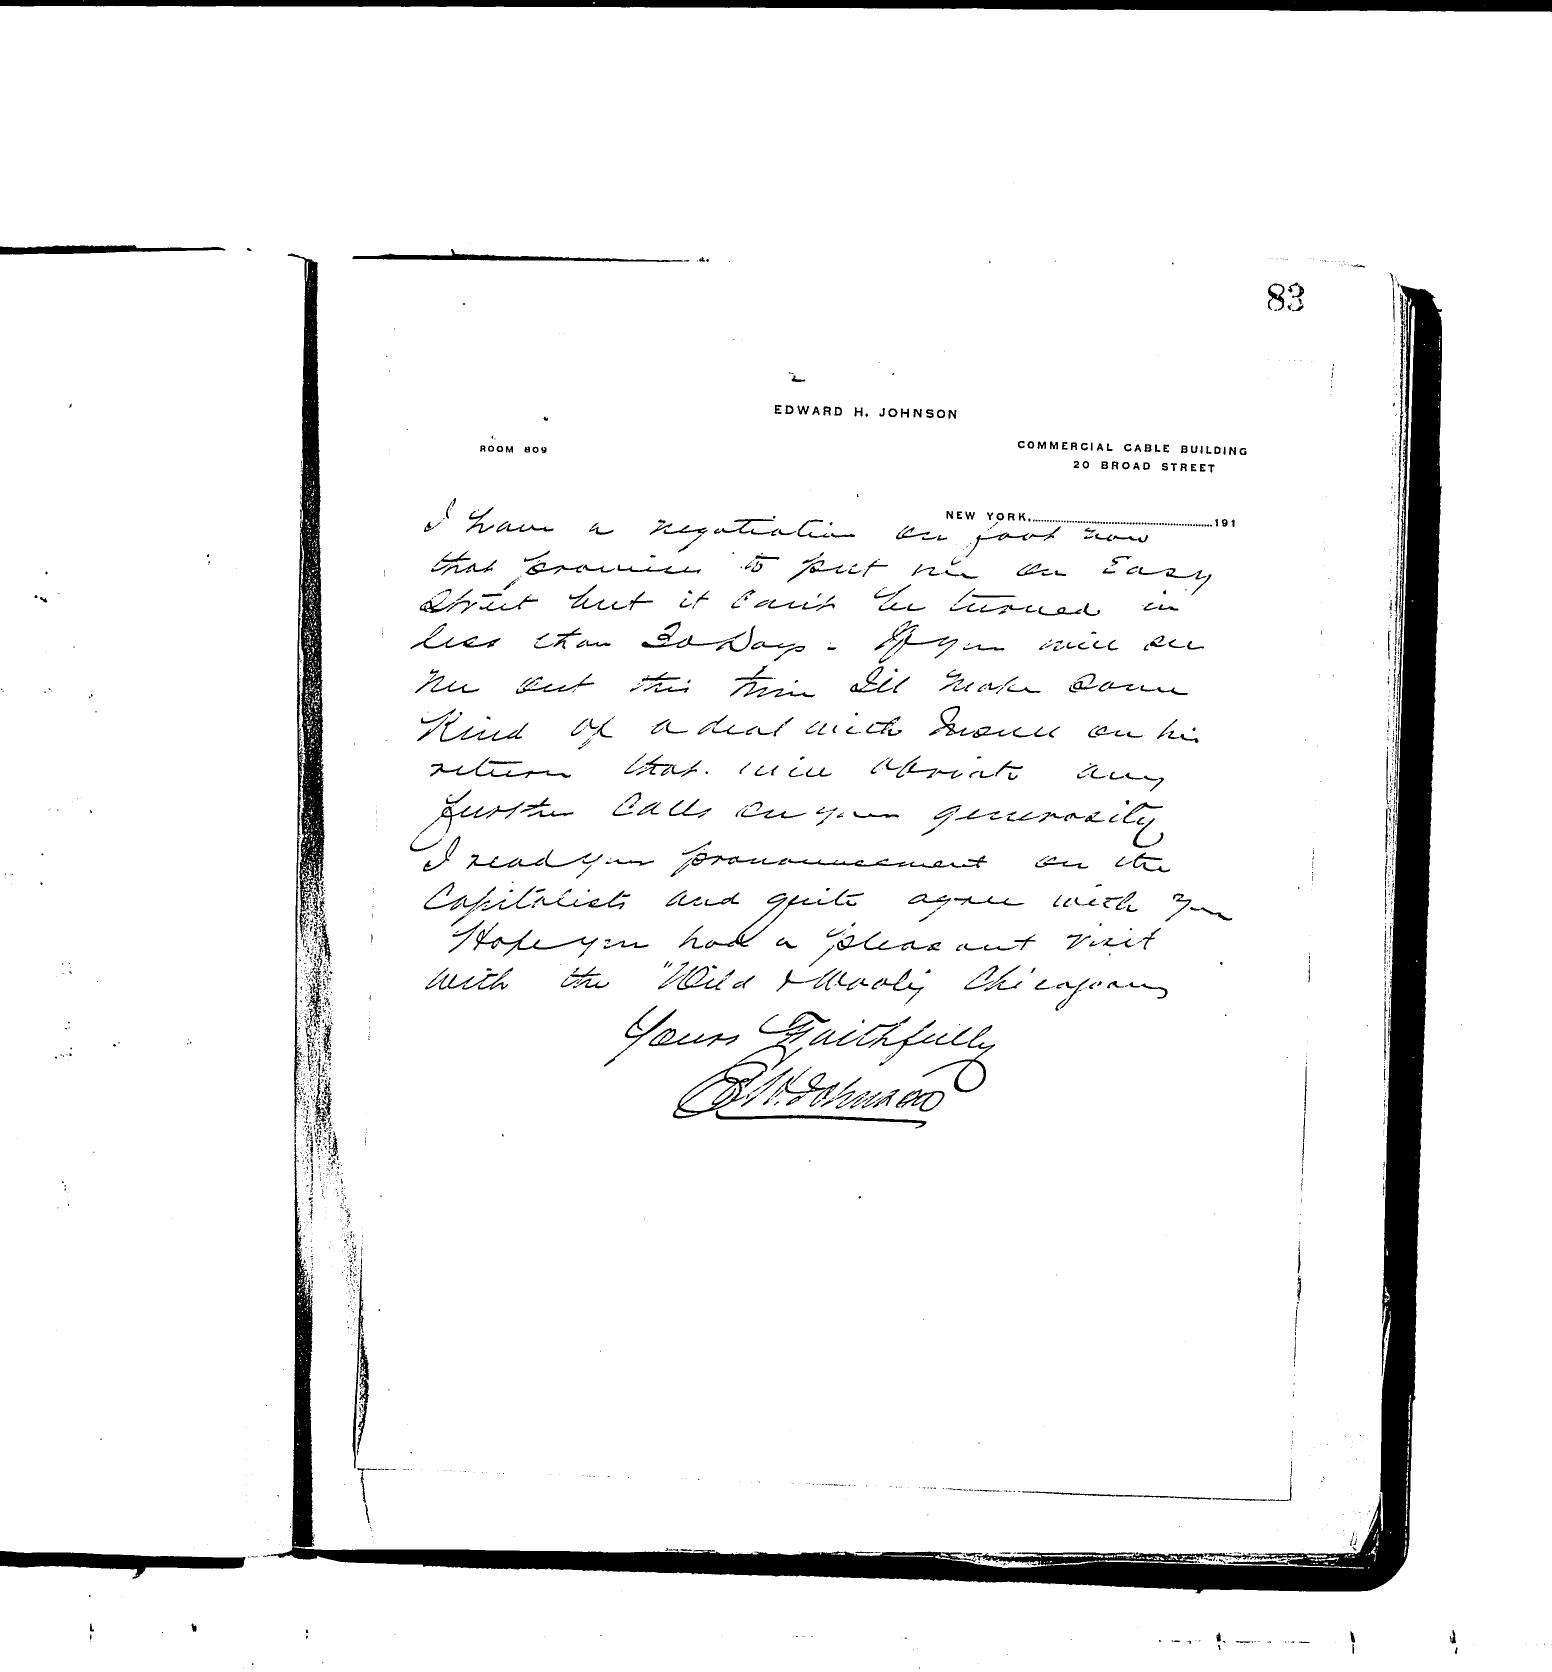 83
EDWARD H. JOHNSON
ROOM 809
COMMERCIAL CABLE BUILDING
20 BROAD STREET
NEW YORK, 191
I have a negotiation on foot now
that promises to put me on Easy
Street but it can't be turned in
less than 30 Days - If you will see
me out this time I'll make some
Kind of a deal with Insull on his
return that will obviate any
further calls on your generosity
I read your pronouncement on the
Capitalists and quite agree with you
Hope you had a pleasant visit
with the "Wild & Wooly Chicagoans
Yours Faithfully
E H. Johnson